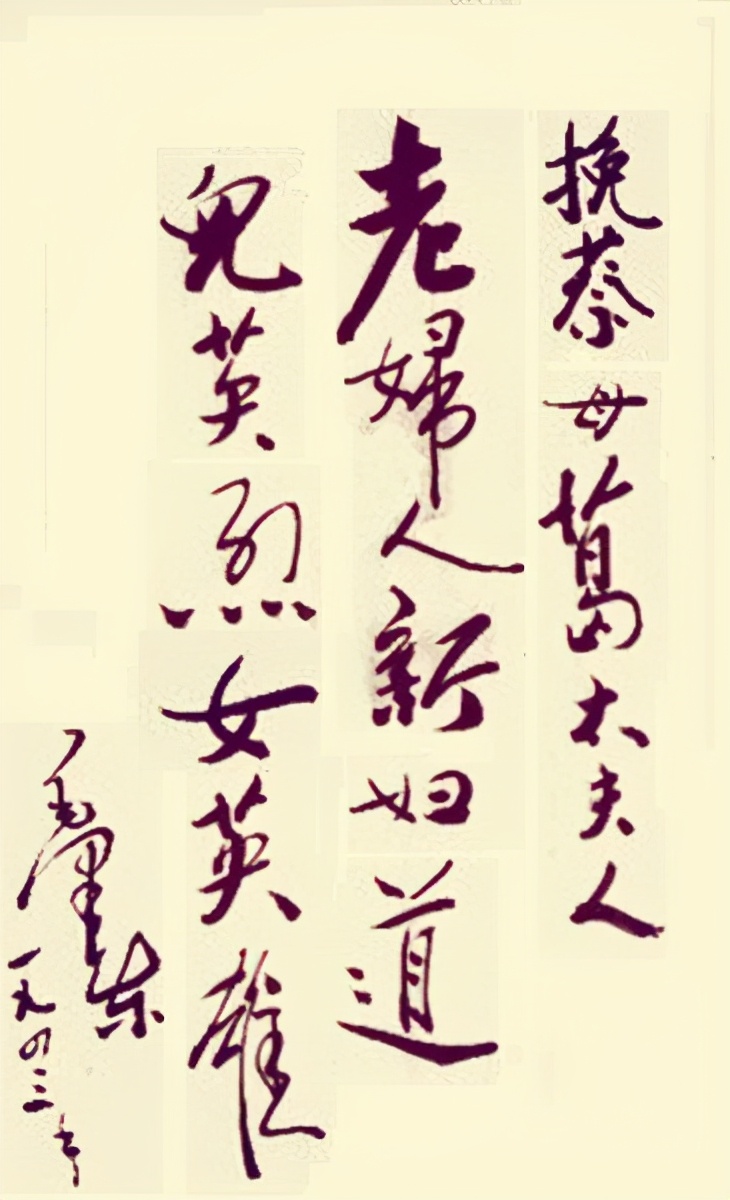 挽蔡母葛太夫人
老婦人新妇道
兒英烈女英雄
毛澤东
一九四三年